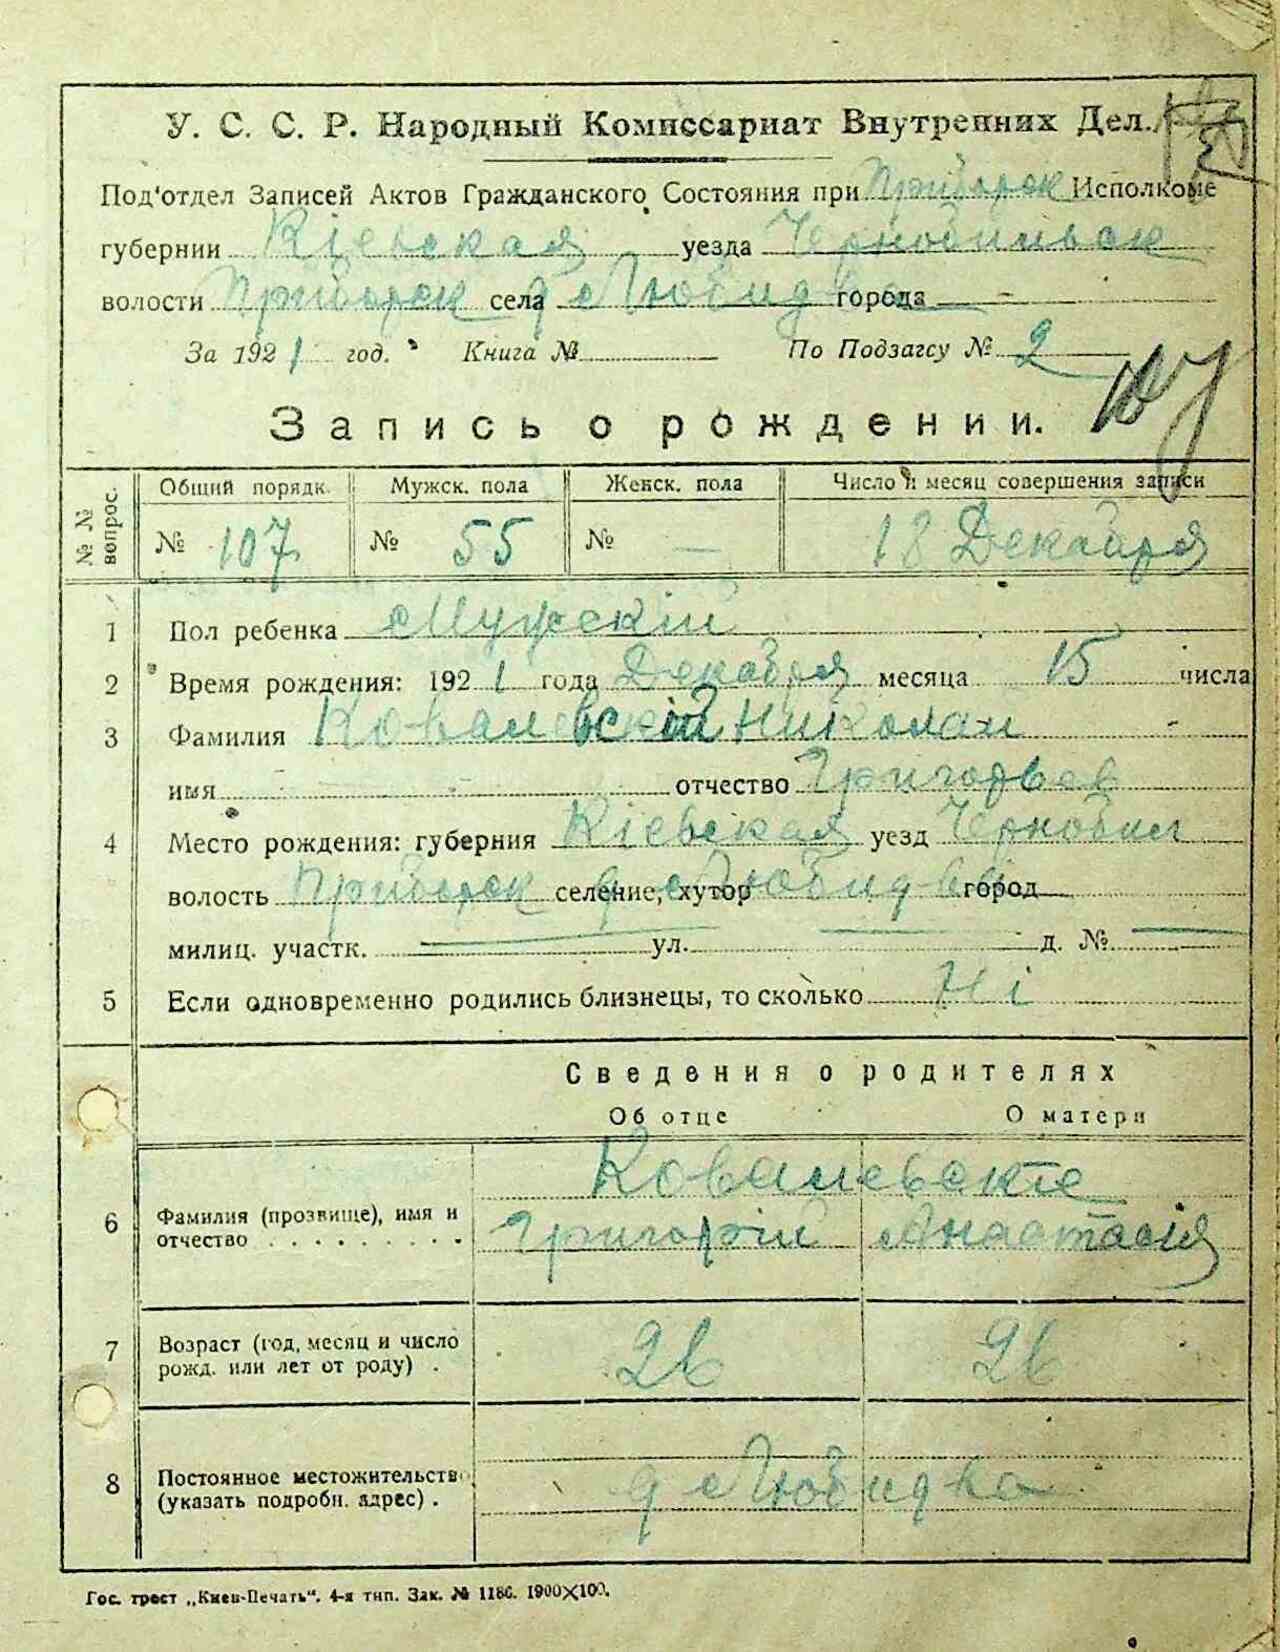 У. С. С. Р. Народный Комиссариат Внутренних Дел.
Под'отдел Записей Актов Гражданского Состояния при Приборск Исполкоме
губернии Кіевская уезда Чернобильск
волости Приборск села д Любидва города —
За 1921 год. Книга № По Подзагсу № 2
107
Запись о рождении.
№ № вопрос.
Общий порядк. Мужск. пола Женск. пола Число и месяц совершения записи
№ 107 № 55 № — 18 Декабря
1 Пол ребенка Мужскій
2 Время рождения: 1921 года Декабря месяца 15 числа
3 Фамилия Ковалевскій Николай
имя отчество Григорьев
4 Место рождения: губерния Кіевская уезд Чернобил
волость Приборск селение, хутор д Любидва город
милиц. участк. — ул. — д. № —
5 Если одновременно родились близнецы, то сколько Ні
Сведения о родителях
Об отце О матери
Ковалевскіе
6 Фамилия (прозвище), имя и отчество Григорій Анастасія
7 Возраст (год, месяц и число рожд. или лет от роду) . 26 26
8 Постоянное местожительств (указать подробн. адрес) . д Любидва
Гос. трест „Киев-Печать“. 4-я тип. Зак. № 1186. 1900×100.